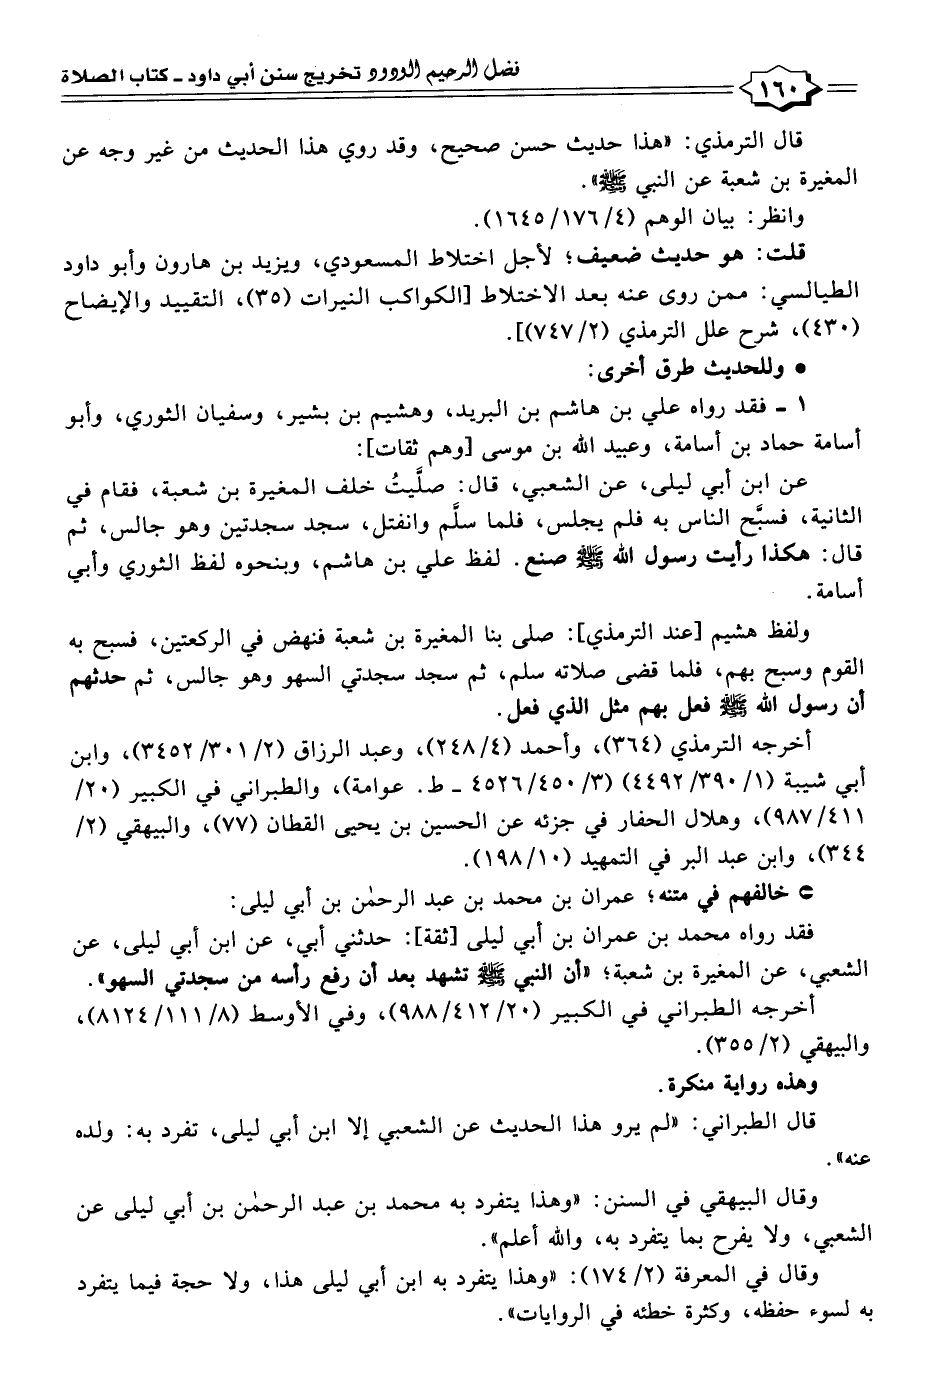 ١٦٠
فضل الرحيم الودود تخريج سنن أبي داود ـ كتاب الصلاة
قال الترمذي: «هذا حديث حسن صحيح، وقد روي هذا الحديث من غير وجه عن
المغيرة بن شعبة عن النبي ﷺ».
وانظر: بيان الوهم (٤/١٧٦/١٦٤٥).
قلت: هو حديث ضعيف؛ لأجل اختلاط المسعودي، ويزيد بن هارون وأبو داود
الطيالسي: ممن روى عنه بعد الاختلاط [الكواكب النيرات (٣٥)، التقييد والإيضاح
(٤٣٠)، شرح علل الترمذي (٢/٧٤٧)].
● وللحديث طرق أخرى:
١ ـ فقد رواه علي بن هاشم بن البريد، وهشيم بن بشير، وسفيان الثوري، وأبو
أسامة حماد بن أسامة، وعبيد الله بن موسى [وهم ثقات]:
عن ابن أبي ليلى، عن الشعبي، قال: صلَّيتُ خلف المغيرة بن شعبة، فقام في
الثانية، فسبَّح الناس به فلم يجلس، فلما سلَّم وانفتل، سجد سجدتين وهو جالس، ثم
قال: هكذا رأيت رسول الله ﷺ صنع. لفظ علي بن هاشم، وبنحوه لفظ الثوري وأبي
أسامة.
ولفظ هشيم [عند الترمذي]: صلى بنا المغيرة بن شعبة فنهض في الركعتين، فسبح به
القوم وسبح بهم، فلما قضى صلاته سلم، ثم سجد سجدتي السهو وهو جالس، ثم حدثهم
أن رسول الله ﷺ فعل بهم مثل الذي فعل.
أخرجه الترمذي (٣٦٤)، وأحمد (٤/٢٤٨)، وعبد الرزاق (٢/٣٠١/٣٤٥٢)، وابن
أبي شيبة (١/٣٩٠/٤٤٩٢) (٣/٤٥٠/٤٥٢٦ ـ ط. عوامة)، والطبراني في الكبير (٢٠/
٤١١/٩٨٧)، وهلال الحفار في جزئه عن الحسين بن يحيى القطان (٧٧)، والبيهقي (٢/
٣٤٤)، وابن عبد البر في التمهيد (١٠/١٩٨).
⊂ خالفهم في متنه؛ عمران بن محمد بن عبد الرحمٰن بن أبي ليلى:
فقد رواه محمد بن عمران بن أبي ليلى [ثقة]: حدثني أبي، عن ابن أبي ليلى، عن
الشعبي، عن المغيرة بن شعبة؛ «أن النبي ﷺ تشهد بعد أن رفع رأسه من سجدتي السهو».
أخرجه الطبراني في الكبير (٢٠/٤١٢/٩٨٨)، وفي الأوسط (٨/١١١/٨١٢٤)،
والبيهقي (٢/٣٥٥).
وهذه رواية منكرة.
قال الطبراني: «لم يرو هذا الحديث عن الشعبي إلا ابن أبي ليلى، تفرد به: ولده
عنه».
وقال البيهقي في السنن: «وهذا يتفرد به محمد بن عبد الرحمٰن بن أبي ليلى عن
الشعبي، ولا يفرح بما يتفرد به، والله أعلم».
وقال في المعرفة (٢/١٧٤): «وهذا يتفرد به ابن أبي ليلى هذا، ولا حجة فيما يتفرد
به لسوء حفظه، وكثرة خطئه في الروايات».